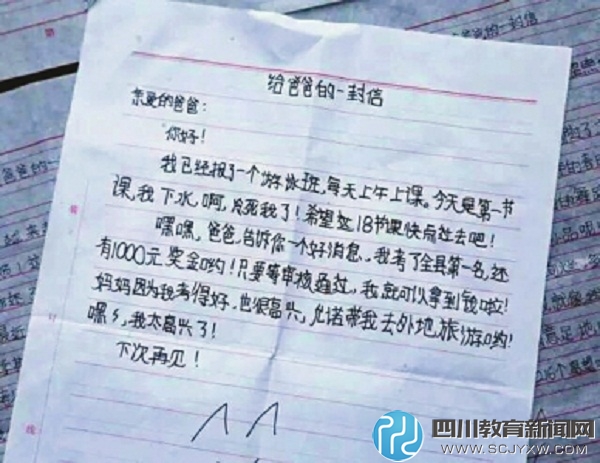 给爸爸的一封信
亲爱的爸爸：
你好！
我已经报了一个游泳班，每天上午上课。今天是第一节
课，我下水，啊，冷死我了！希望这18节课快点过去吧！
嘿嘿，爸爸，告诉你一个好消息，我考了全县第一名，还
有1000元奖金哟！只要等审核通过，我就可以拿到钱啦！
妈妈因为我考得好，也很高兴，允诺带我去外地旅游哟！
嘿嘿，我太高兴了！
下次再见！
四川教育新闻网
WWW.SCJYXW.COM